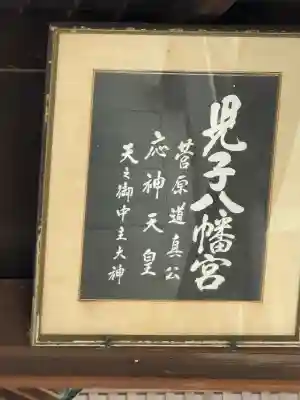 児子八幡宮
菅原道真公
応神天皇
天之御中主大神